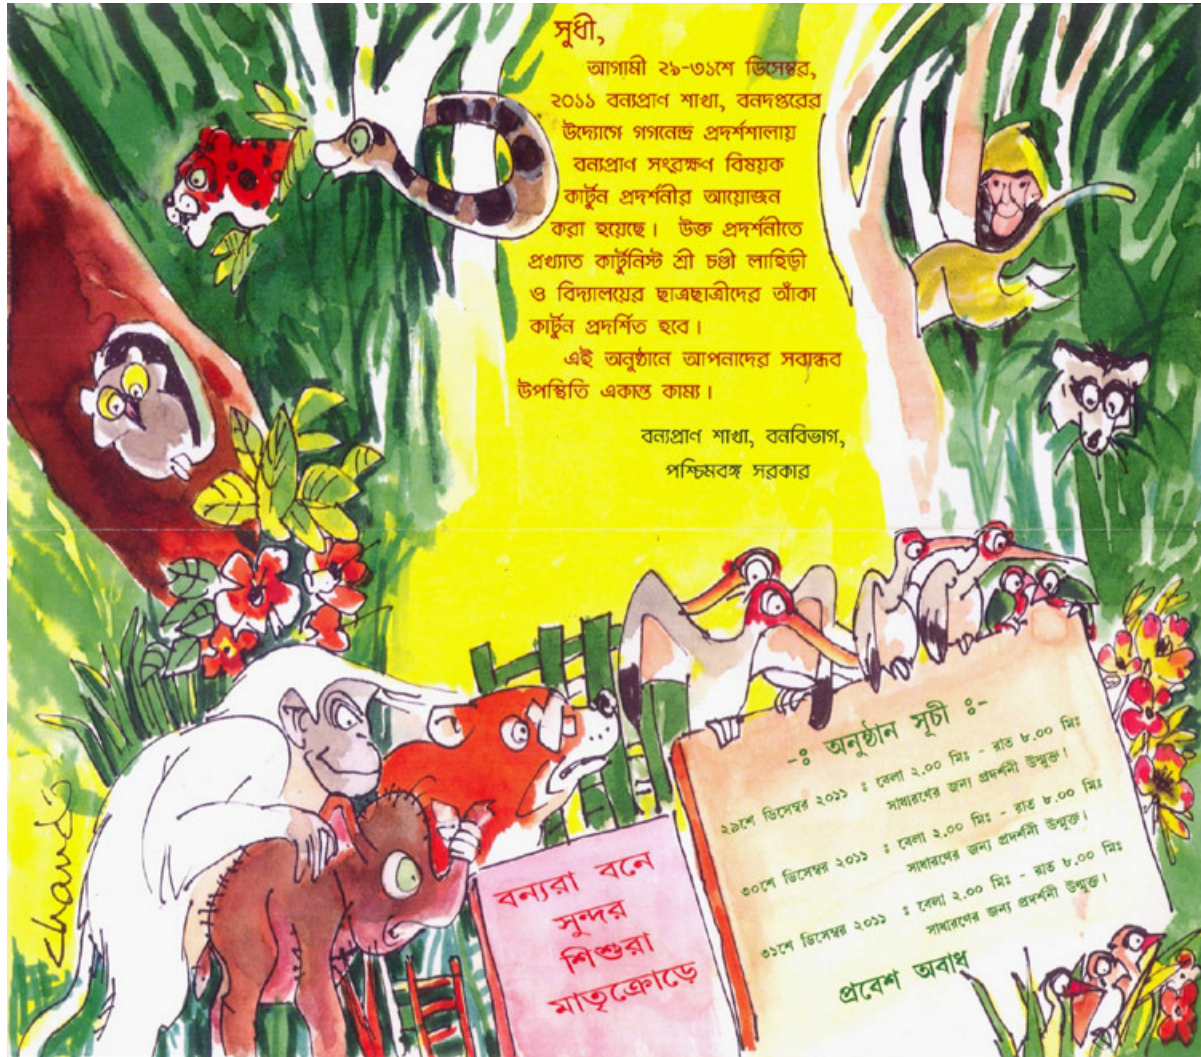 সুধী,
আগামী ২৯-৩১শে ডিসেম্বর,
২০১১ বন্যপ্রাণ শাখা, বনদপ্তরের
উদ্যোগে গগনেন্দ্র প্রদর্শশালায়
বন্যপ্রাণ সংরক্ষণ বিষয়ক
কার্টুন প্রদর্শনীর আয়োজন
করা হয়েছে। উক্ত প্রদর্শনীতে
প্রখ্যাত কার্টুনিস্ট শ্রী চণ্ডী লাহিড়ী
ও বিদ্যালয়ের ছাত্রছাত্রীদের আঁকা
কার্টুন প্রদর্শিত হবে।
এই অনুষ্ঠানে আপনাদের সবান্ধব
উপস্থিতি একান্ত কাম্য।
বন্যপ্রাণ শাখা, বনবিভাগ,
পশ্চিমবঙ্গ সরকার
-ঃ অনুষ্ঠান সূচী ঃ-
২৯শে ডিসেম্বর ২০১১ ঃ বেলা ২.০০ মিঃ - রাত ৮.০০ মিঃ
সাধারণের জন্য প্রদর্শনী উন্মুক্ত।
৩০শে ডিসেম্বর ২০১১ ঃ বেলা ২.০০ মিঃ - রাত ৮.০০ মিঃ
সাধারণের জন্য প্রদর্শনী উন্মুক্ত।
৩১শে ডিসেম্বর ২০১১ ঃ বেলা ২.০০ মিঃ - রাত ৮.০০ মিঃ
সাধারণের জন্য প্রদর্শনী উন্মুক্ত।
প্রবেশ অবাধ
বন্যরা বনে
সুন্দর
শিশুরা
মাতৃক্রোড়ে
Chandi